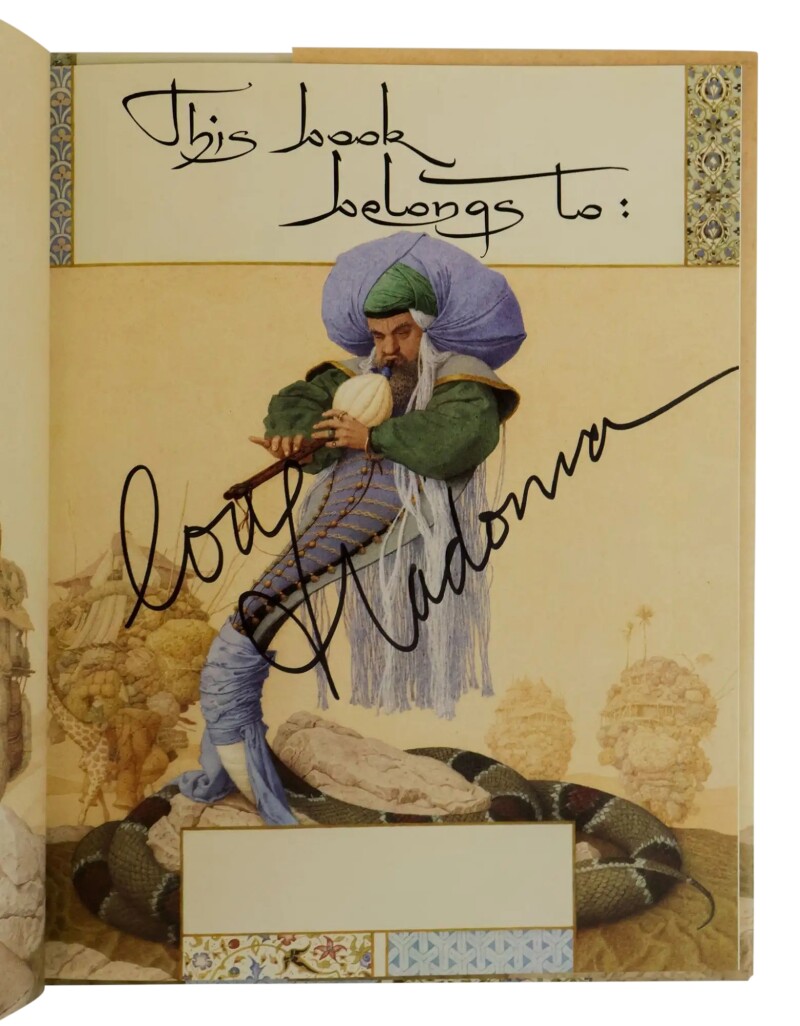 This book
belongs to:
love
Madonna